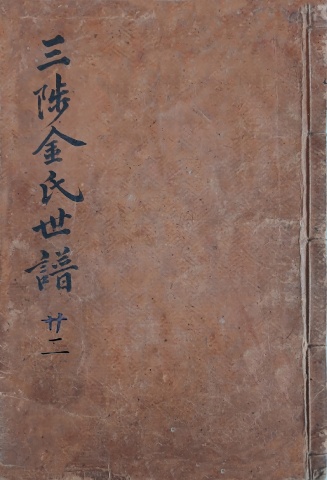 三陟金氏世譜 廿二